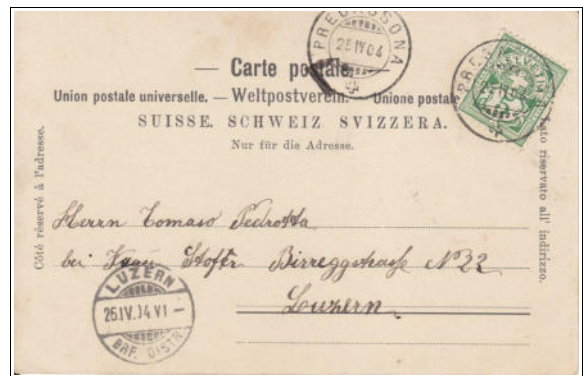 PREGASSONA
25 IV 04
— Carte postale. —
Union postale universelle. — Weltpostverein. — Unione postale
SUISSE. SCHWEIZ. SVIZZERA.
Nur für die Adresse.
Côté réservé à l'adresse.
Lato riservato all' indirizzo.
HELVETIA
Herrn Tomaso Pedrotta
bei Frau Birreggstrasse No 22
Luzern
LUZERN
26.IV.04.VI—
BRF. DISTR.